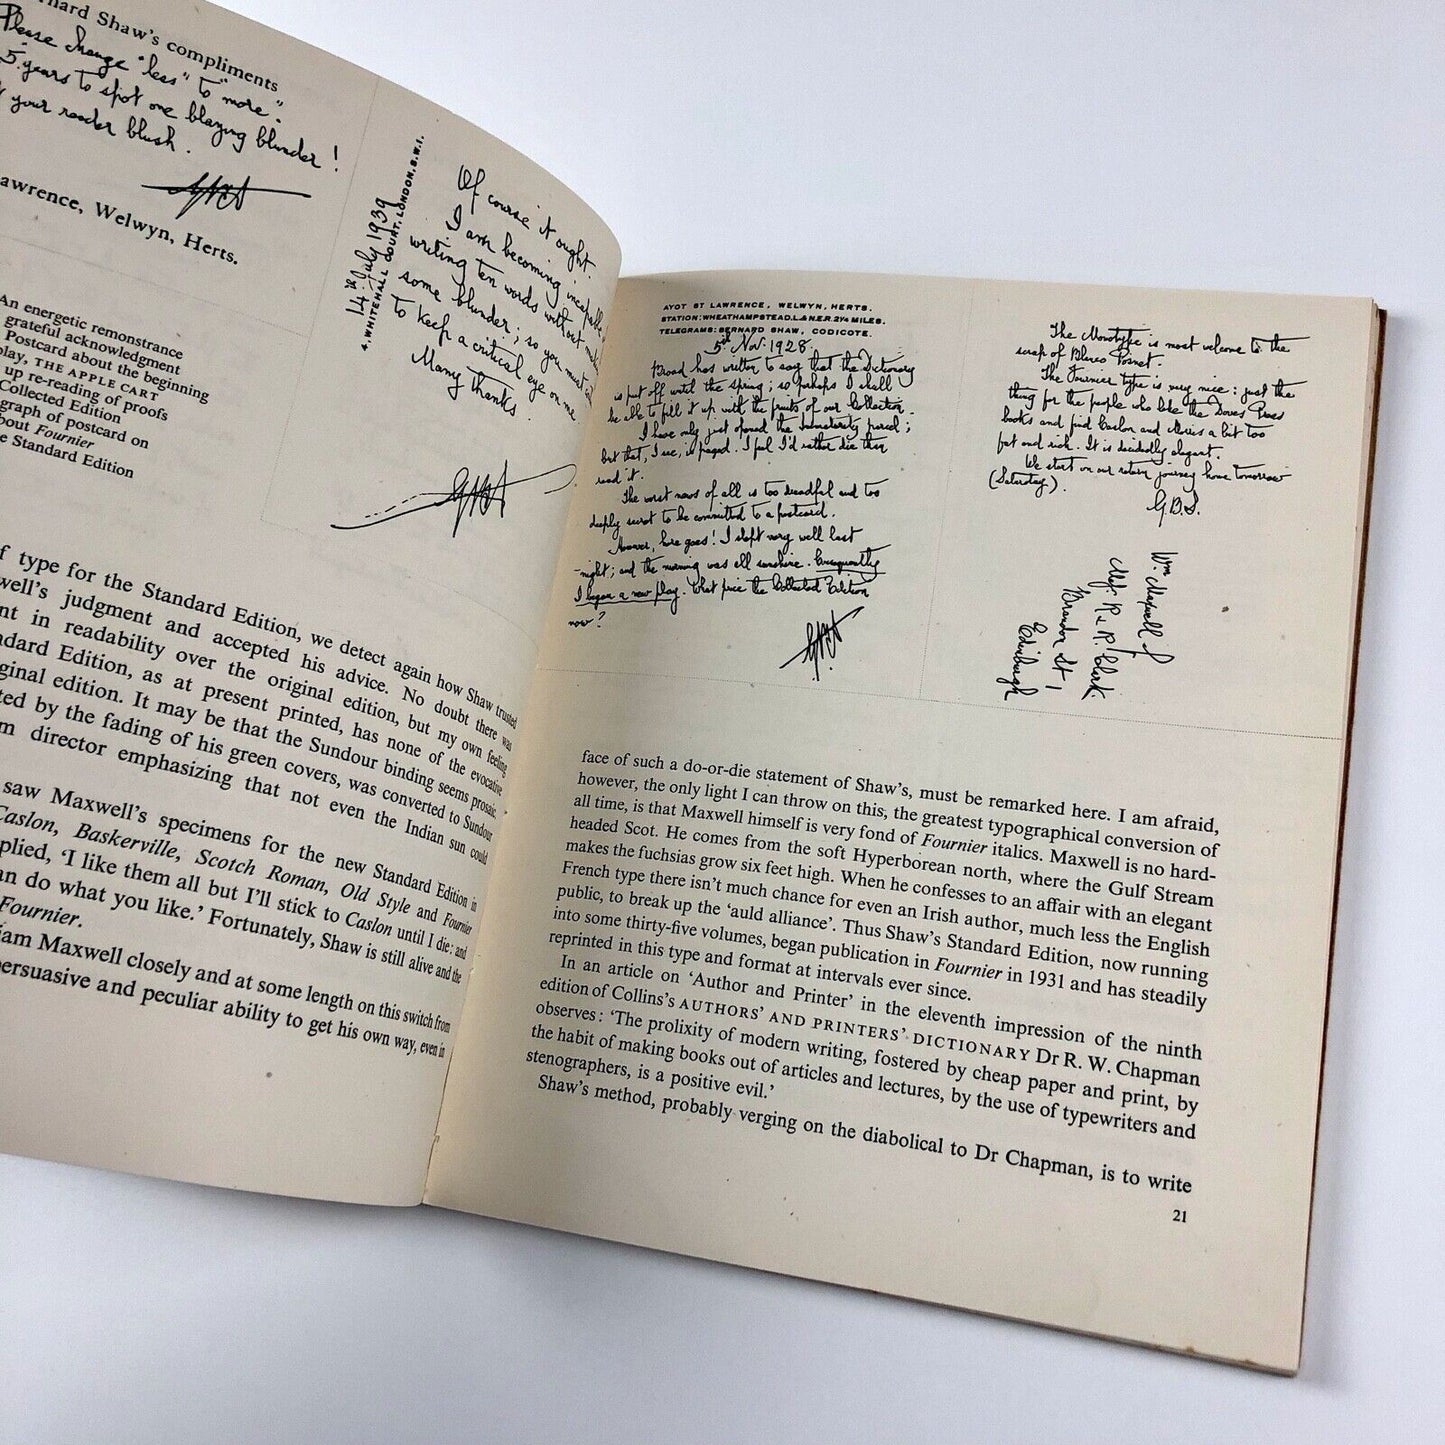 nard Shaw's compliments
Please change "less" to "more".
5 years to spot one blazing blunder!
your reader blush.
GBS
awrence, Welwyn, Herts.
14th July 1939
4, WHITEHALL COURT, LONDON, S.W.1.
Of course it ought.
I am becoming incapable
writing ten words without
some blunder; so you must
to keep a critical eye on me
Many thanks
GBS
An energetic remonstrance
grateful acknowledgment
Postcard about the beginning
play, THE APPLE CART
up re-reading of proofs
Collected Edition
graph of postcard on
about Fournier
e Standard Edition
f type for the Standard Edition, we detect again how Shaw trusted
well's judgment and accepted his advice. No doubt there was
ent in readability over the original edition, but my own feeling
ndard Edition, as at present printed, has none of the evocative
ginal edition. It may be that the Sundour binding seems prosaic:
ted by the fading of his green covers, was converted to Sundour
m director emphasizing that not even the Indian sun could
saw Maxwell's specimens for the new Standard Edition in
Caslon, Baskerville, Scotch Roman, Old Style and Fournier
plied, 'I like them all but I'll stick to Caslon until I die: and
an do what you like.' Fortunately, Shaw is still alive and the
Fournier.
iam Maxwell closely and at some length on this switch from
persuasive and peculiar ability to get his own way, even in
AYOT ST LAWRENCE, WELWYN, HERTS.
STATION: WHEATHAMPSTEAD, L.& N.E.R. 2¼ MILES.
TELEGRAMS: BERNARD SHAW, CODICOTE.
5th Nov. 1928.
Broad has written to say that the Dictionary
is put off until the spring; so perhaps I shall
be able to fill it up with the fruits of our Collection.
I have only just opened the Immaturity parcel;
but that, I see, is paged. I feel I'd rather die than
read it.
The worst news of all is too dreadful and too
deeply secret to be committed to a postcard.
However, here goes! I slept very well last
night; and the morning was all sunshine. Consequently
I began a new play. What price the Collected Edition
now?
GBS
The Monotype is most welcome to the
scrap of Blanco Posnet.
The Fournier type is very nice: just the
thing for the people who like the Doves Press
books and find Caslon and Morris a bit too
fat and rich. It is decidedly elegant.
We start on our return journey home tomorrow
(Saturday).
G.B.S.
Wm. Maxwell
R & R. Clark
Brandon St
Edinburgh
face of such a do-or-die statement of Shaw's, must be remarked here. I am afraid,
however, the only light I can throw on this, the greatest typographical conversion of
all time, is that Maxwell himself is very fond of Fournier italics. Maxwell is no hard-
headed Scot. He comes from the soft Hyperborean north, where the Gulf Stream
makes the fuchsias grow six feet high. When he confesses to an affair with an elegant
French type there isn't much chance for even an Irish author, much less the English
public, to break up the 'auld alliance'. Thus Shaw's Standard Edition, now running
into some thirty-five volumes, began publication in Fournier in 1931 and has steadily
reprinted in this type and format at intervals ever since.
In an article on 'Author and Printer' in the eleventh impression of the ninth
edition of Collins's AUTHORS' AND PRINTERS' DICTIONARY Dr R. W. Chapman
observes: 'The prolixity of modern writing, fostered by cheap paper and print, by
the habit of making books out of articles and lectures, by the use of typewriters and
stenographers, is a positive evil.'
Shaw's method, probably verging on the diabolical to Dr Chapman, is to write
21